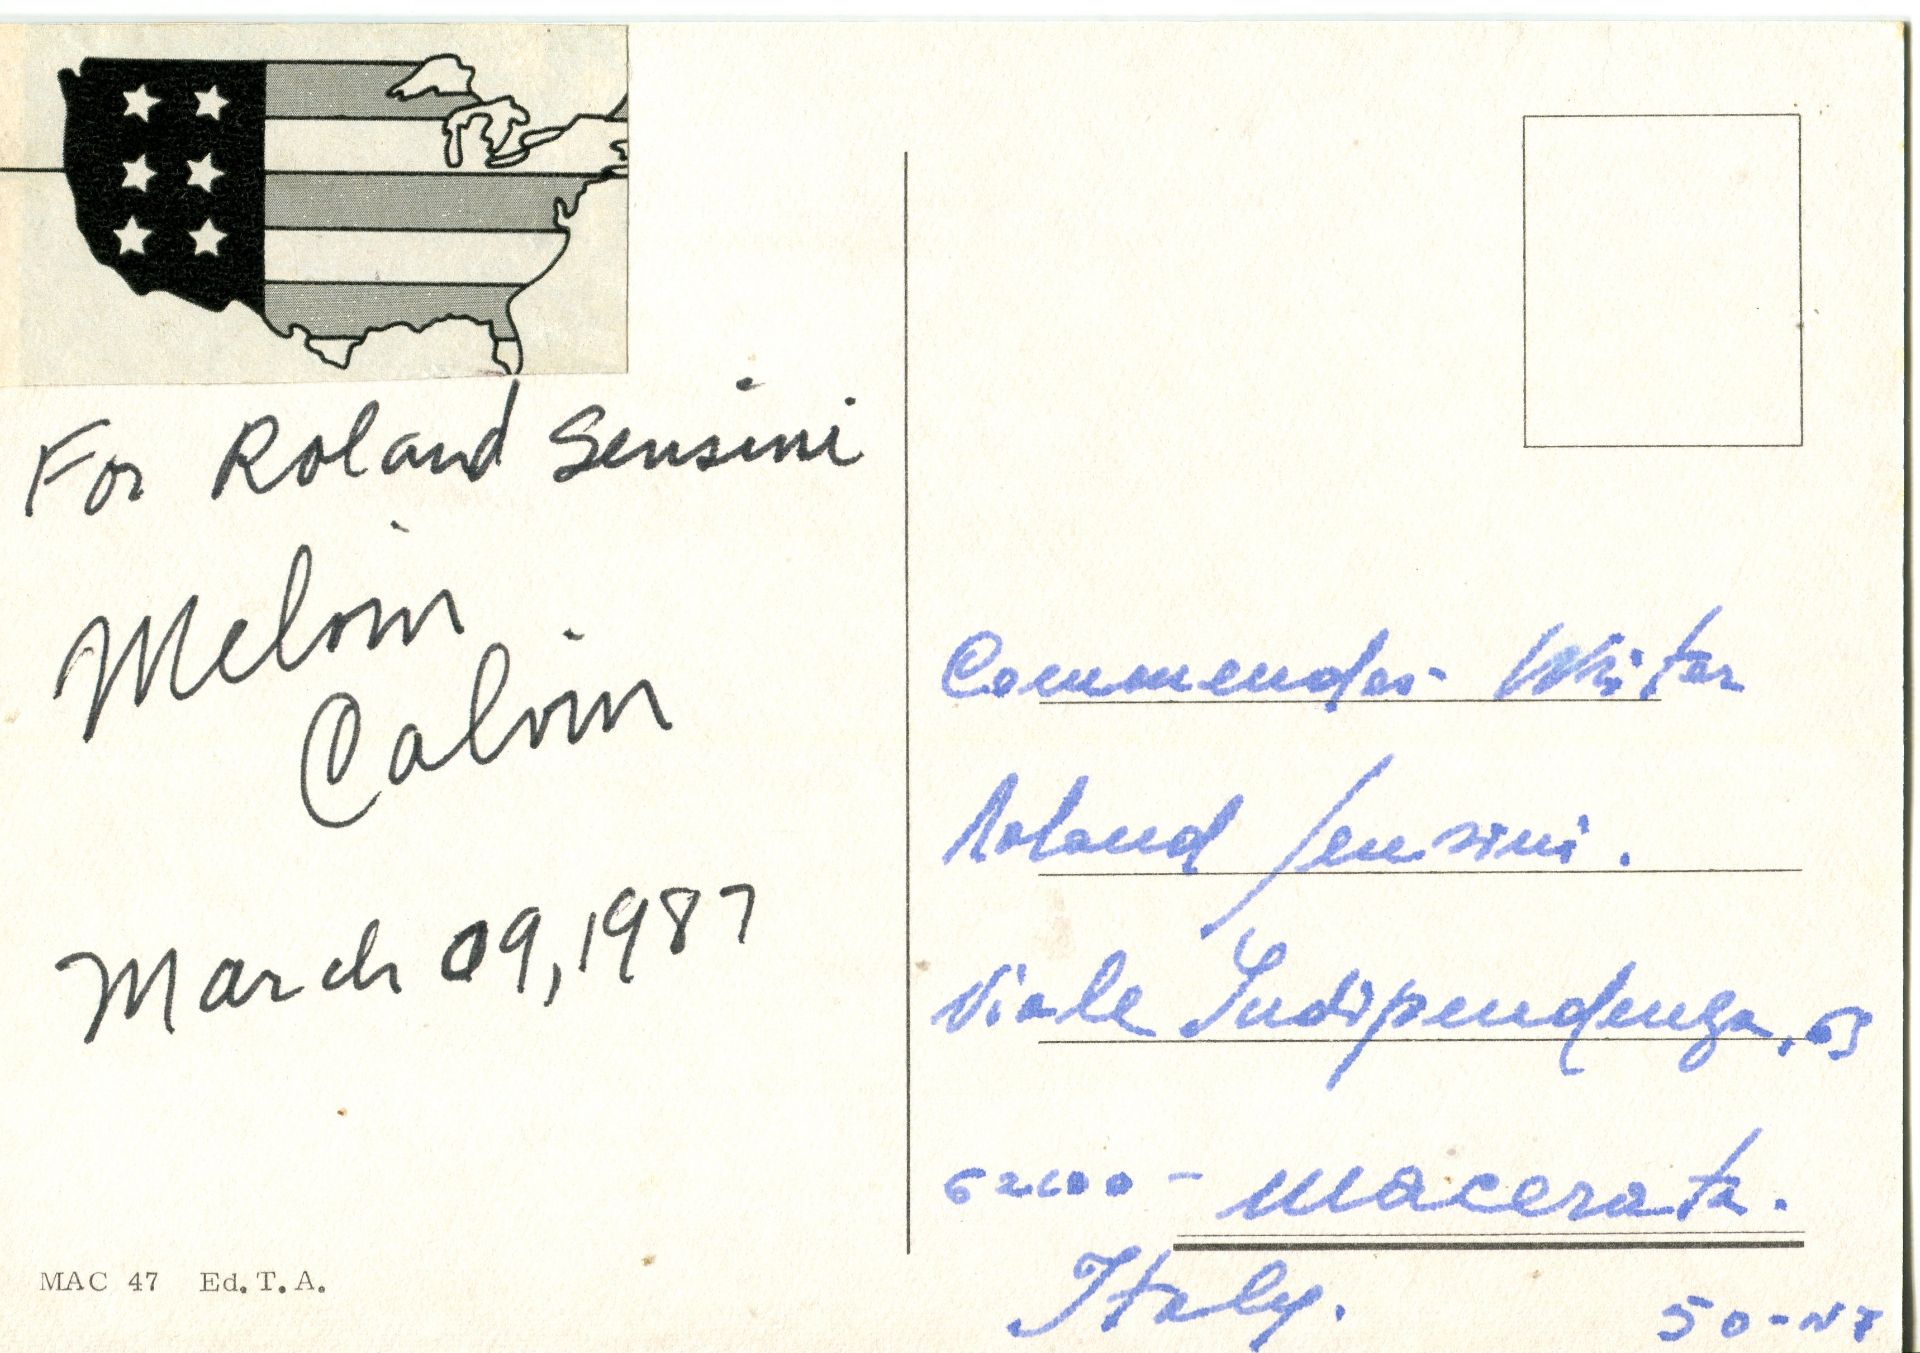 For Roland Sensini
Melvin
Calvin
March 09, 1987
MAC 47 Ed. T. A.
Roland Sensini.
Viale Indipendenza, 63
62100 - Macerata.
Italy.